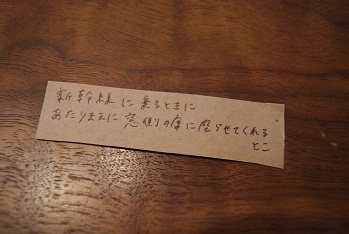 新幹線に乗るときに
あたりまえに窓側の席に座らせてくれる
とこ